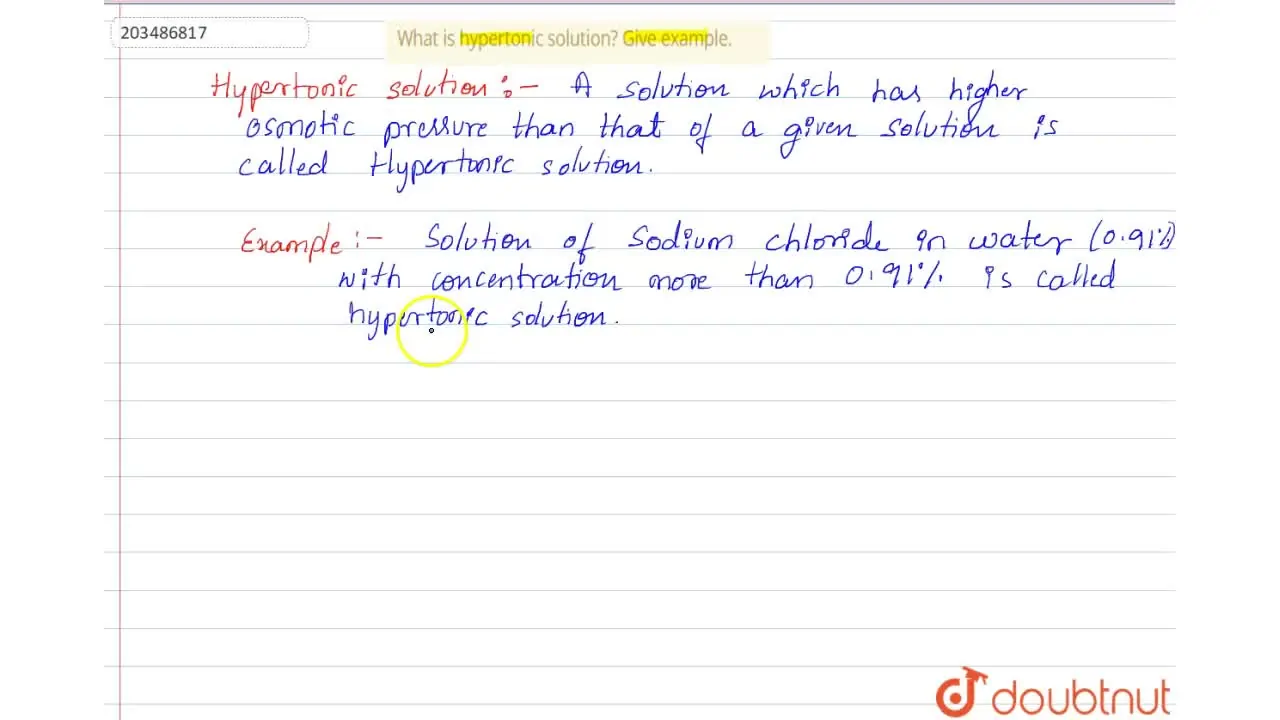 203486817
What is hypertonic solution? Give example.
Hypertonic solution :- A solution which has higher
osmotic pressure than that of a given solution is
called Hypertonic solution.
Example :- Solution of Sodium chloride in water (0.91%)
with concentration more than 0.91% is called
hypertonic solution.
doubtnut